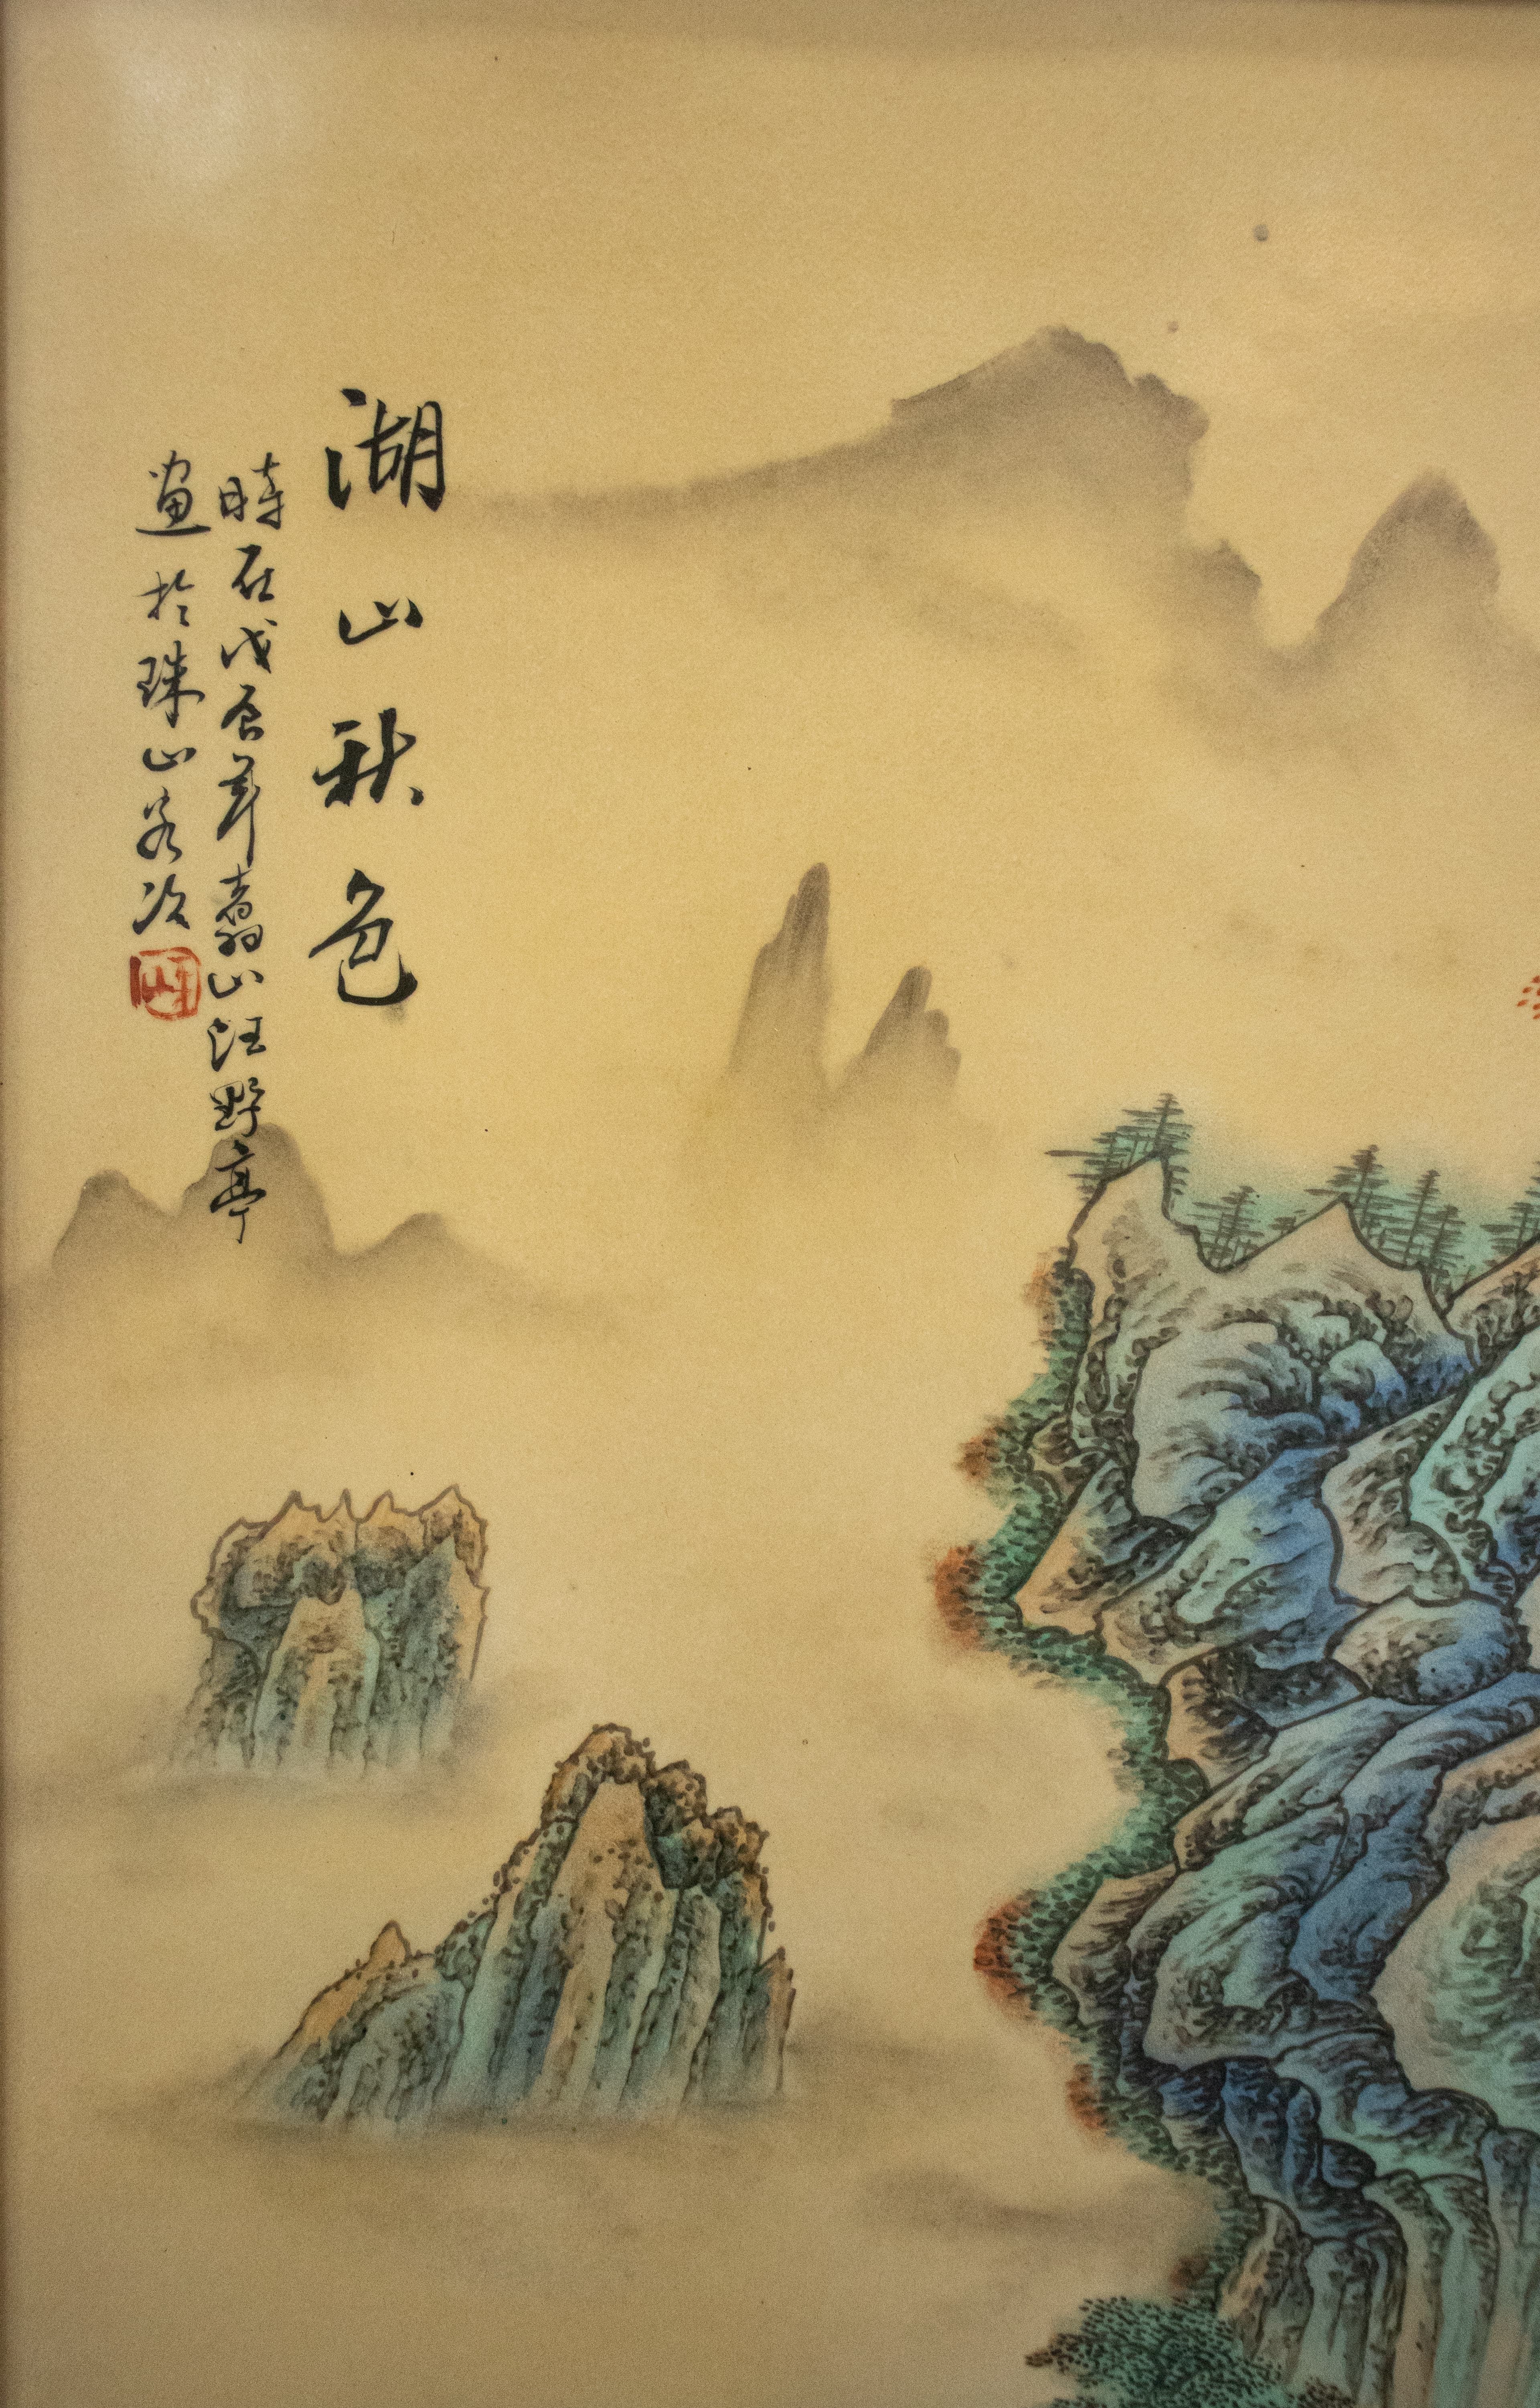 湖山秋色
時在戊辰年翥山汪野亭
畫於珠山客次